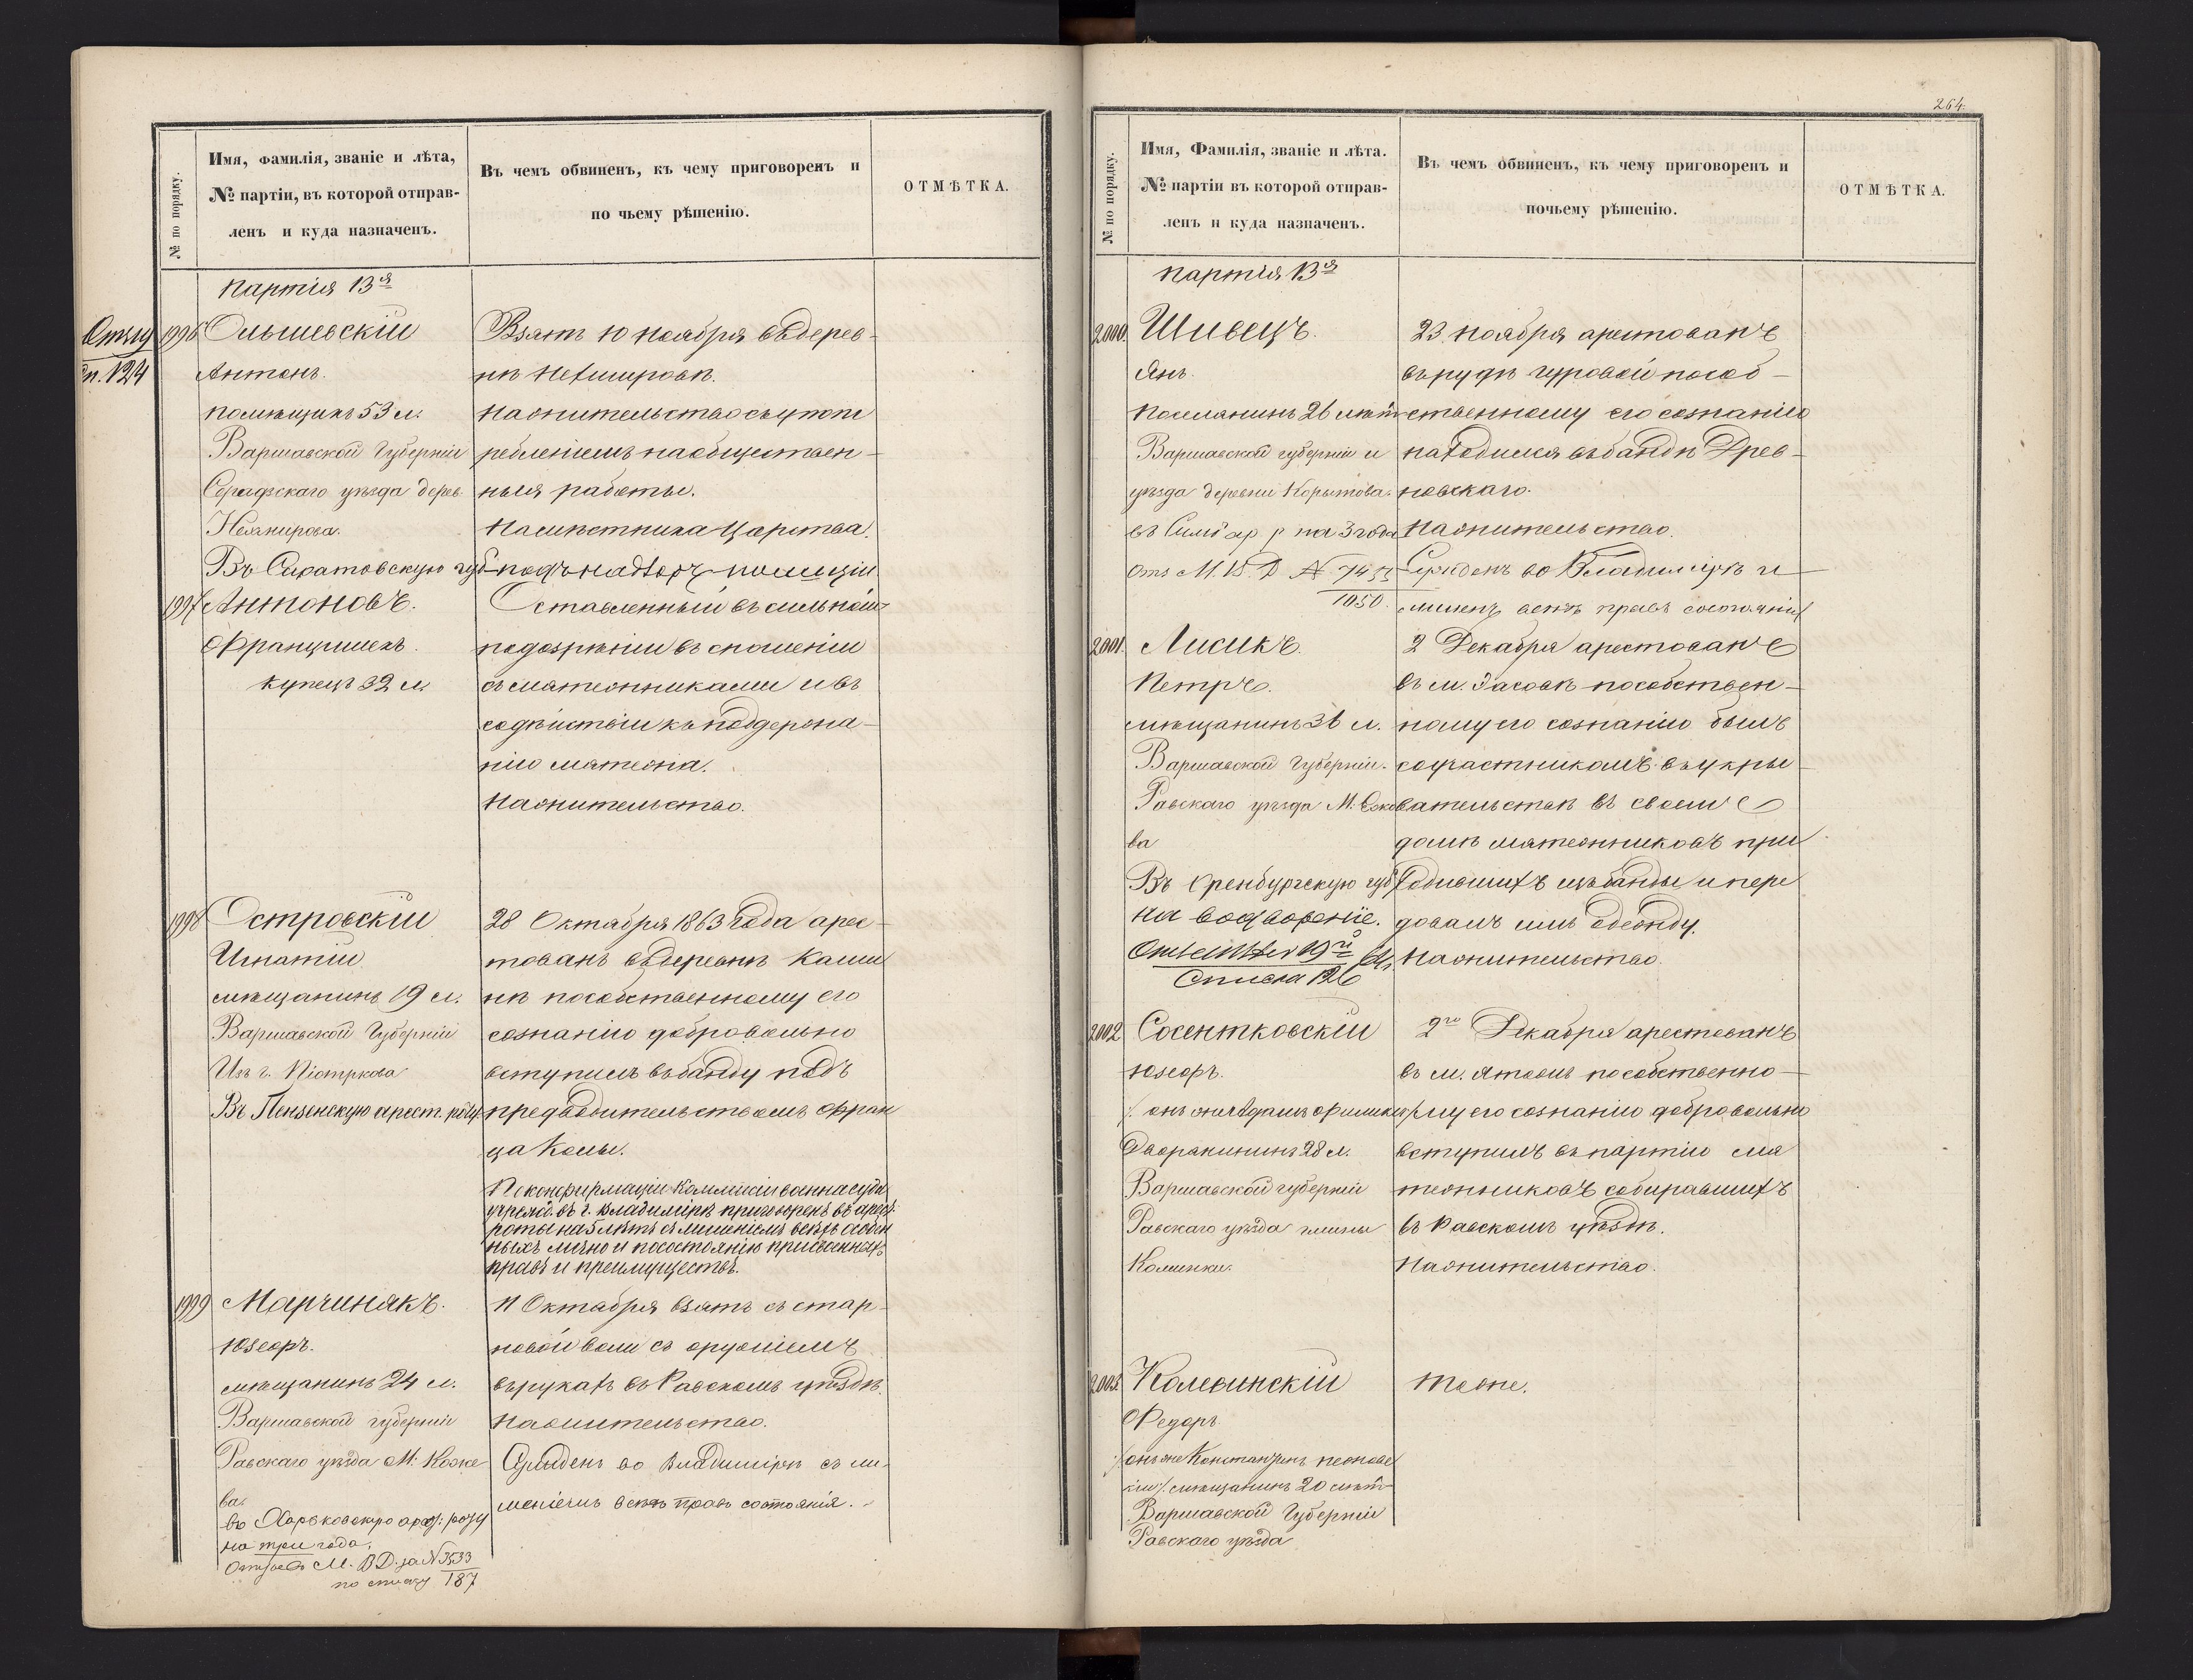 № по порядку.
Имя, фамилія, званіе и лѣта,
№ партіи, въ которой отправ-
ленъ и куда назначенъ.
Въ чемъ обвиненъ, къ чему приговоренъ и
по чьему рѣшенію.
ОТМѢТКА.
партія 13я
1996
Олышевскій
Антонъ.
помѣщикъ 53 л.
Варшавской Губерніи
Серадзскаго уѣзда дерев.
Въ Саратовскую губ. подъ надзоръ полиціи
Взятъ 10 ноября въ дерев-
нѣ
На жительство съ упот
ребленіемъ на обществен-
ныя работы.
Намѣстника Царства.
1997
Антоновъ.
Францишекъ.
купецъ 32 л.
Оставленный въ сильном
подозрѣніи въ сношеніи
съ мятежниками и въ
содѣйствіи къ поддержа-
нію мятежа.
На жительство.
1998
Островскій
Игнатій
мѣщанинъ 19 л.
Варшавской Губерніи
Изъ г. Піотркова
Въ Пензенскую арест. роту
28 Октября 1863 года арес-
тованъ въ деревнѣ Ками
нѣ по собственному его
сознанію добровольно
вступилъ въ банду подъ
предводительствомъ Фран
ца Колы.
По конфирмаціи Коммисіи военна суда
учрежд. въ г. Владимірѣ приговоренъ въ арест.
роты на 5 лѣтъ съ лишеніемъ всѣхъ особен
ныхъ лично и по состоянію присвоенныхъ
правъ и преимуществъ.
1999
Марчинякъ.
Юзефъ.
мѣщанинъ 24 л.
Варшавской губерніи
Равскаго уѣзда М: Коже
ва.
въ Харьковскую арес: роту
на три года.
М. В. Д. за № 3533
по списку 187
11 Октября взятъ съ стар-
новой воли съ оружіемъ
въ рукахъ въ Равскомъ уѣздѣ.
На жительство.
Сужденъ во Владимірѣ съ ли-
шеніемъ всѣхъ правъ состоянія.
264.
№ по порядку.
Имя, Фамилія, званіе и лѣта.
№ партіи въ которой отправ-
ленъ и куда назначенъ.
Въ чемъ обвиненъ, къ чему приговоренъ и
почьему рѣшенію.
ОТМѢТКА.
партія 13я
2000.
Шивецъ.
Янъ.
Поселянинъ 26 лѣтъ
Варшавской губерніи и
уѣзда деревни Корытова.
въ Симб ар р на 3 года
М. В. Д № 7453
1050.
23 ноября арестованъ
въ рудѣ гузовой по соб-
ственному его сознанію
находился въ бандѣ Древ-
новскаго.
На жительство.
Сужденъ во Владимірѣ и
лишенъ всѣхъ правъ состоянія
2001.
Лисикъ.
Петръ.
мѣщанинъ 36 л.
Варшавской Губерніи.
Равскаго уѣзда М.
ва
Въ Оренбургскую губ.
на водвореніе.
Списка 126
2 Декабря арестованъ
въ м. по собствен-
ному его сознанію былъ
соучастникомъ въ укры-
вательствѣ въ своемъ
домѣ мятежниковъ при
ходившихъ изъ банды и пере
довалъ имъ одежду.
На жительство.
2002
Сосентковскій
Юзефъ.
Дворянинъ 28 л.
Варшавской губерніи
Равскаго уѣзда гмины
2го Декабря арестованъ
въ м. по собственно-
му его сознанію добровольно
вступилъ въ партію мя
тежниковъ собиравшихъ
въ Равскомъ уѣздѣ.
На жительство.
2003.
Колевинскій
Федоръ.
мѣщанинъ 20 лѣтъ
Варшавской Губерніи
Равскаго уѣзда
Тоже.